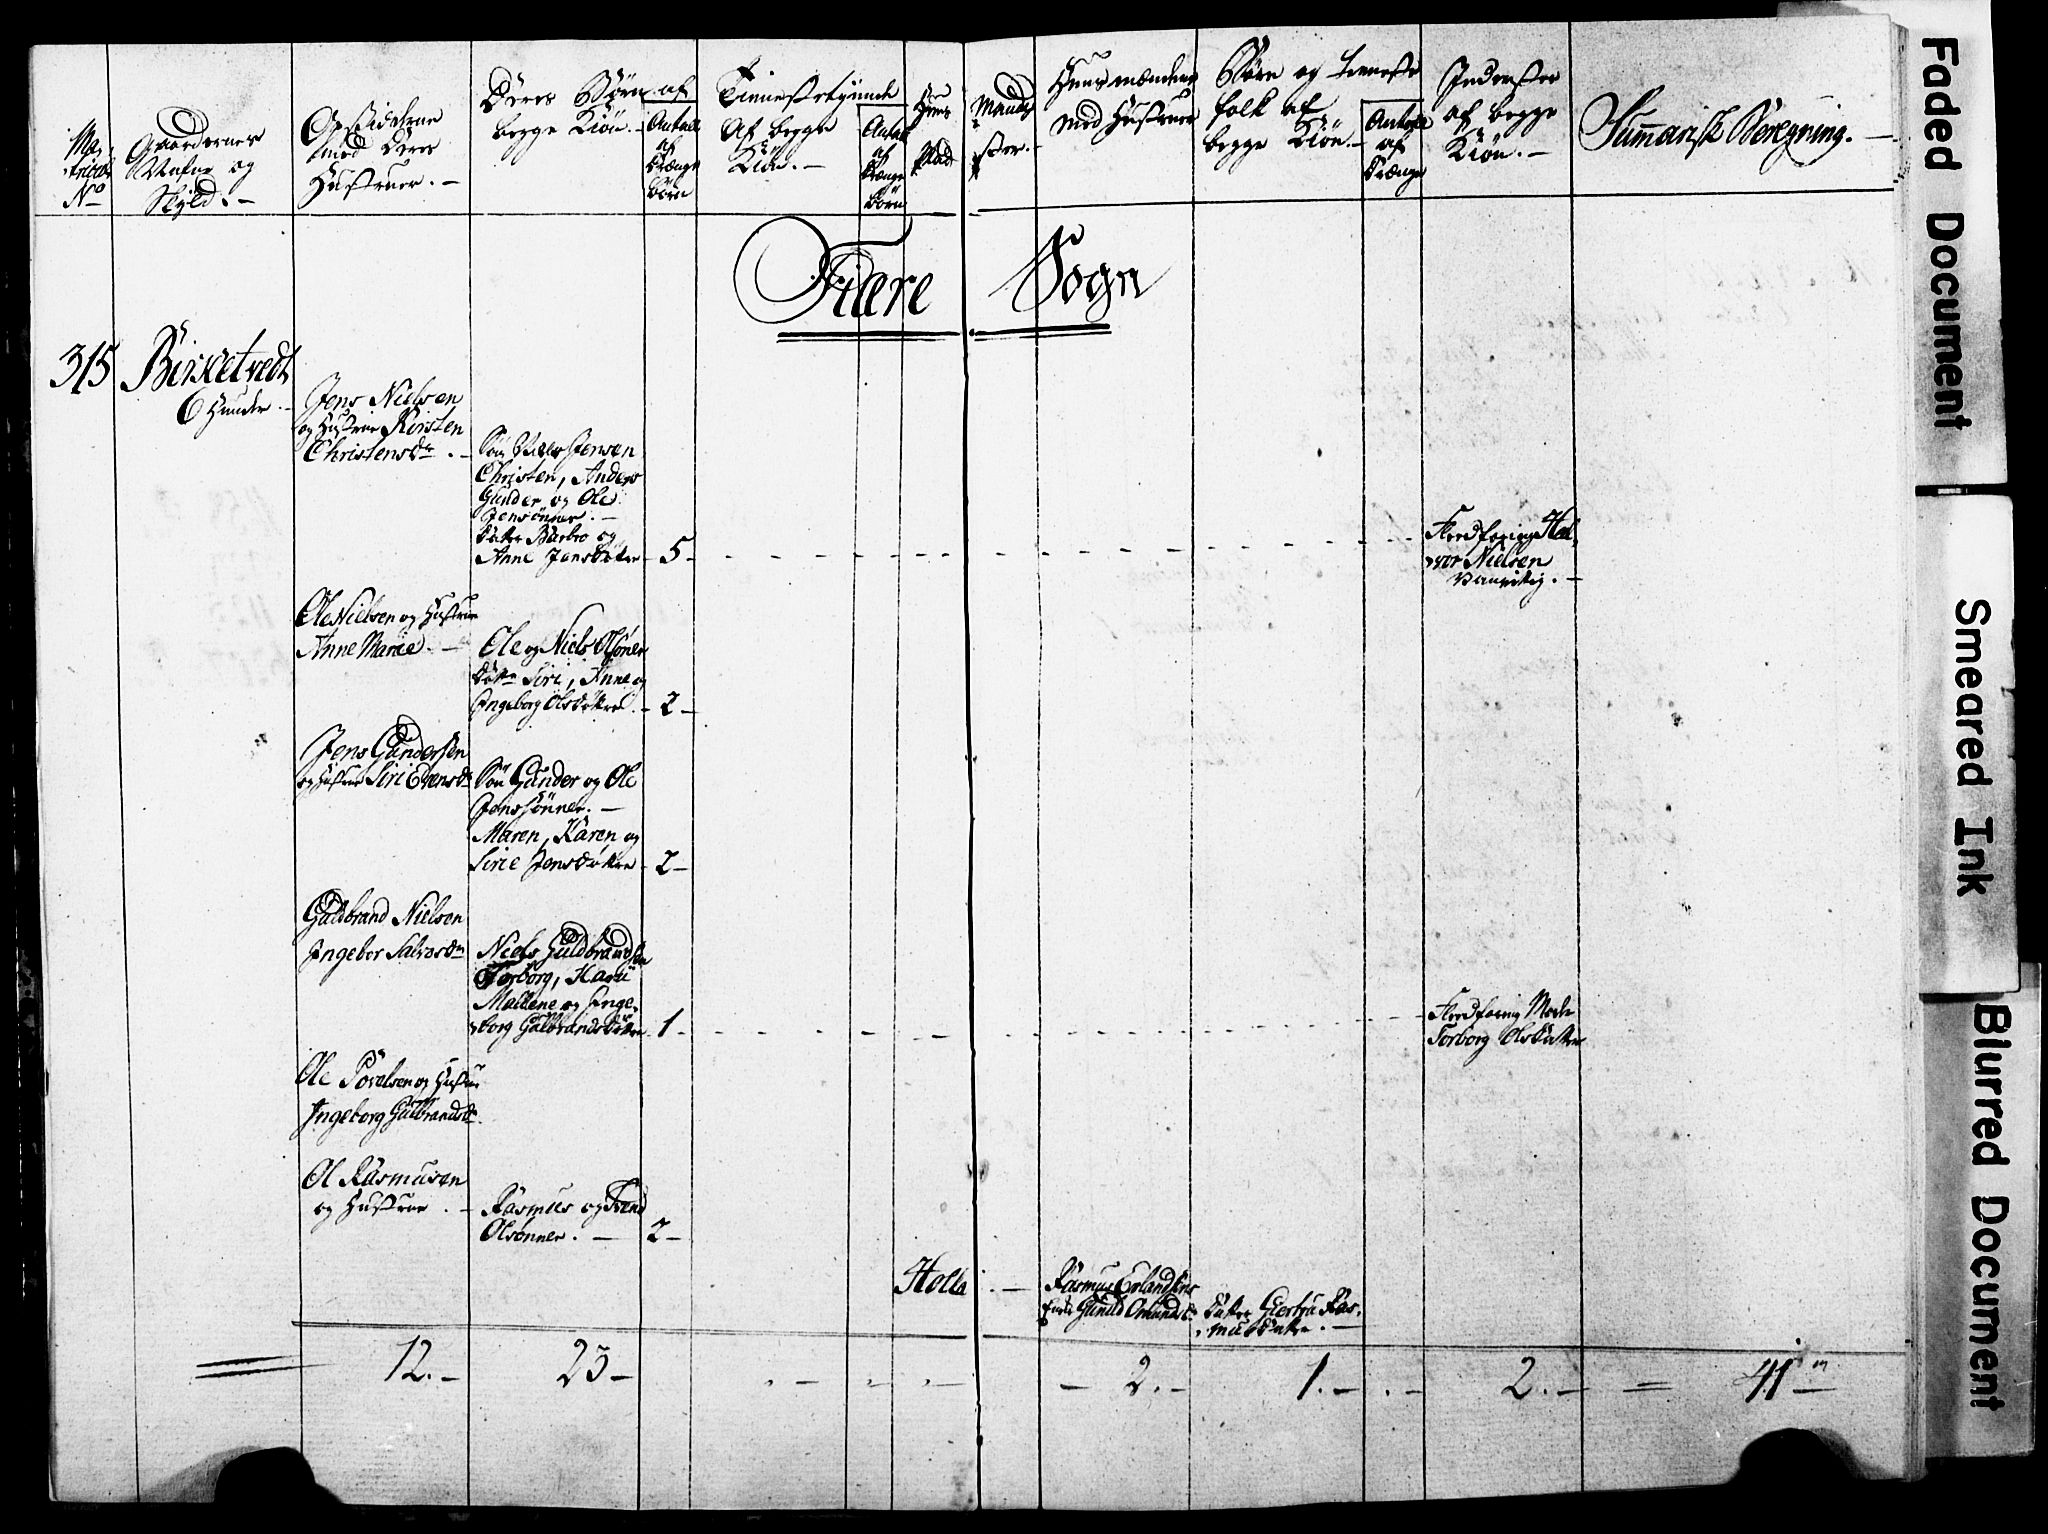 Ma-
tricul
No
Gaardernes
Nafne og
Skyld. -
Opsidderne
med Deres
Hustruer. -
Deres Børn af
begge Kiøn. -
Antall
af
Drænge
Børn
Tienestetyunde
Af begge
Kiøn. -
Antal
af
Drænge
Børn
Huus
Plad
Mands
ser. -
Huusmændene
med Hustruer
Børn og tieneste
folk af
begge Kiøn. -
Antall
af
Drænge
Inderster
af begge
Kiøn. -
Summarisk Beregning. -
Fiære Sogn
315 Birketvedt
6 Huuder. -
Jens Nielsen
og Hustrue Kirsten
Christensdr. -
Søn Niels Jensen
Christen, Anders
Gunder og Ole
Jensønner. -
Døttre Barbro og
Anne Jensdøttre - 5 -
Flodføring Hal-
vor Nielsen
vanvitig. -
Ole Nielsen og Hustrue
Anne Marie. -
Ole og Niels Olsøner
Døttr Siri, Anne og
Ingeborg Olsdøttre. - 2 -
Jens Gundersen
og Hustrue Siri Evensdr
Søn Gunder og Ole
Jenssønner. -
Maren, Karen og
Sirie Jensdøttre - 2 -
Guldbrand Nielsen
Ingebor Salvesdr
Niels Guldbrandsen
Torborg, Kari
Mallene og Inge-
borg Gulbrandsdøttre - 1 -
Flodføring Mode
Torborg Olsdatter
Ole Povelsen og Hustrue
Ingeborg Gulbrandsdr.
Ol Rasmusen
og Hustrue. -
Rasmus og Tend
Olsønner. - 2 -
Holla. -
Rasmus Erlandsens
Enke Gunild Omundsdr
Datter Giertru Ras-
musdatter. -
12. - 23 - 2. - 1. - 2. - = 41 -
Faded Document
Smeared Ink
Blurred Document